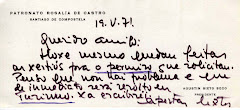 PATRONATO ROSALIA DE CASTRO
SANTIAGO DE COMPOSTELA
19.V.71
Querido amigo:
Hoxe mesmo quedan feitas
as xestiós pra o permiso que solicitan.
Penso que non hai problema e que
de inmediato será resolto en
Turismo. Xa escribirei
Apertas
AGUSTIN SIXTO SECO
PRESIDENTE